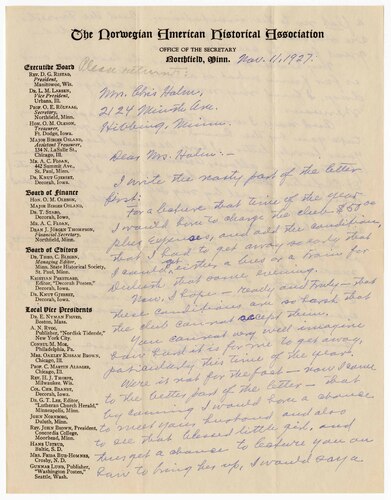 The Norwegian American Historical Association
OFFICE OF THE SECRETARY
Northfield, Minn. Nov. 11, 1927.
Please return!
Executive Board
REV. D. G. RISTAD,
President,
Manitowoc, Wis.
DR. L. M. LARSEN,
Vice President,
Urbana, Ill.
PROF. O. E. RÖLVAAG,
Secretary,
Northfield, Minn.
HON. O. M. OLESON,
Treasurer,
Ft. Dodge, Iowa.
MAJOR BIRGER OSLAND,
Assistant Treasurer,
134 N. LaSalle St.,
Chicago, Ill.
MR. A. C. FLOAN,
442 Summit Ave.,
St. Paul, Minn.
DR. KNUT GJERSET,
Decorah, Iowa.
Board of Finance
HON. O. M. OLESON,
MAJOR BIRGER OSLAND,
DR. T. STABO,
Decorah, Iowa.
MR. A. C. FLOAN,
DEAN J. JÖRGEN THOMPSON,
Financial Secretary,
Northfield, Minn.
Board of Editors
DR. THEO. C. BLEGEN,
Managing Editor,
Minn. State Historical Society,
St. Paul, Minn.
KRISTIAN PRESTGARD,
Editor, "Decorah Posten,"
Decorah, Iowa.
DR. KNUT GJERSET,
Decorah, Iowa.
Local Vice Presidents
DR. E. NYMAN FIGVED,
Boston, Mass.
A. N. RYGG,
Publisher, "Nordisk Tidende"
New York City.
CONSUL M. MOE,
Philadelphia, Pa.
MRS. OAKLEY KISSAM BROWN,
Chicago, Ill.
PROF. C. MARTIN ALSAGER,
Chicago, Ill.
REV. H. J. THORPE,
Milwaukee, Wis.
COL. CHR. BRANDT,
Decorah, Iowa.
DR. G. T. LEE, EDITOR
"Lutheran Church Herald,"
Minneapolis, Minn.
JOHN NORWEG,
Duluth, Minn.
REV. JOHN BROWN, PRESIDENT,
Concordia College,
Moorhead, Minn.
HANS USTRUD,
Baltic, S. D.
MRS. FRIDA BUE-HOMNES,
Crosby, N. D.
GUNNAR LUND, PUBLISHER,
"Washington Posten"
Seattle, Wash.
Mrs. Chris Halm,
2124 Minn. Ave.
Hibbing, Minn.
Dear Mrs. Halm:—
I write the nasty part of the letter
first:
For a lecture that time of the year
I would have to charge the club $50.00
plus expenses, and add the condition,
that I had to get away so early that
I could get either a bus or a train for
Duluth that same evening.
Now, I hope — really and truly — that
these conditions are so harsh that
the club cannot accept them.
You cannot very well imagine
how hard it is for me to get away,
particularly this time of the year.
Were it not for the fact — now I come
to the better part of the letter — that
by coming I would have a chance
to meet your husband, and also
to see that blessed little girl, and
thus get a chance to lecture you on
how to bring her up, I would say a